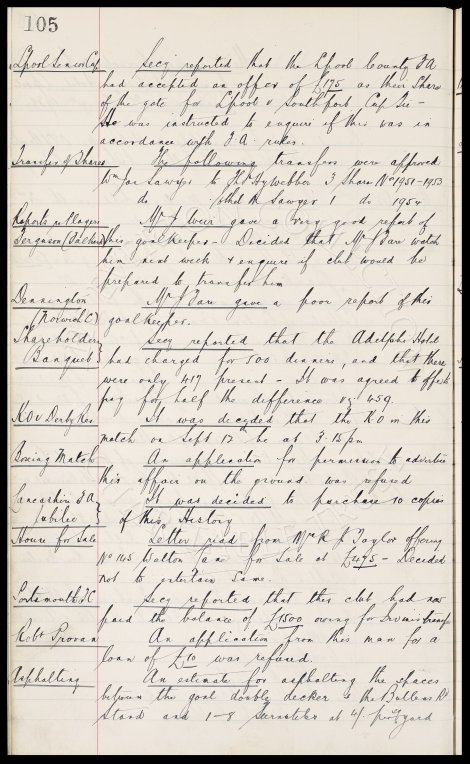 105
Lpool Senior Cup Secy reported that the Lpool County F A
had accepted an offer of £175 as their share
of the gate for Lpool v Southport Cup tie -
He was instructed to enquire if this was in
accordance with F.A. rules.
Transfer of Shares The following transfers were approved
Wm Jas Sawyer to Thos Hy Webber 3 Shares No 1951-1953
do Ethel R Sawyer 1 do 1954
Reports re Players Mr J Weir gave a very good report of
Ferguson (Falkirk) this goalkeeper - Decided that Mr J Fare watch
him next week & enquire if club would be
prepared to transfer him
Dennington Mr J Fare gave a poor report of this
(Norwich C) goalkeeper.
Shareholders Secy reported that the Adelphi Hotel
Banquet had charged for 500 dinners, and that there
were only 417 present - It was agreed to offer to
pay for half the difference viz 459.
K O v Derby Res It was decided that the K O in this
match on Sept 17 be at 3.15 pm
Boxing Match An application for permission to advertise
this affair on the ground was refused
Lancashire F A It was decided to purchase 10 copies
Jubilee of this History
House for Sale Letter read from Mr R J Taylor offering
No 145 Walton Lane for Sale at £475 - Decided
not to entertain same.
Portsmouth F C Secy reported that this club had now
paid the balance of £1500 owing for Irvine's transfer
Robt Provan An application from this man for a
loan of £10 was refused.
Asphalting An estimate for asphalting the spaces
between the goal double decker & the Bullens Rd
Stand and 1-8 at 4/- yard